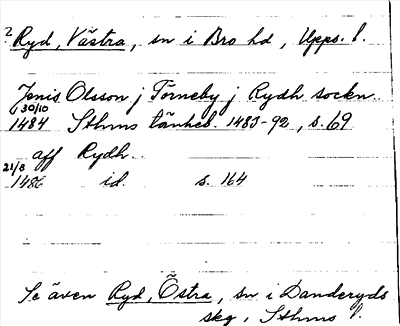 2 Ryd, Västra, sn i Bro hd, Upps. l.
Jönis Olsson j Törneby j Rydh sockn.
30/10
1484 Sthms tänkeb. 1483-92, s. 69
aff Rydh.
21/8
1486 id. s. 164
Se även Ryd, Östra, sn i Danderyds
skg, Sthms l.